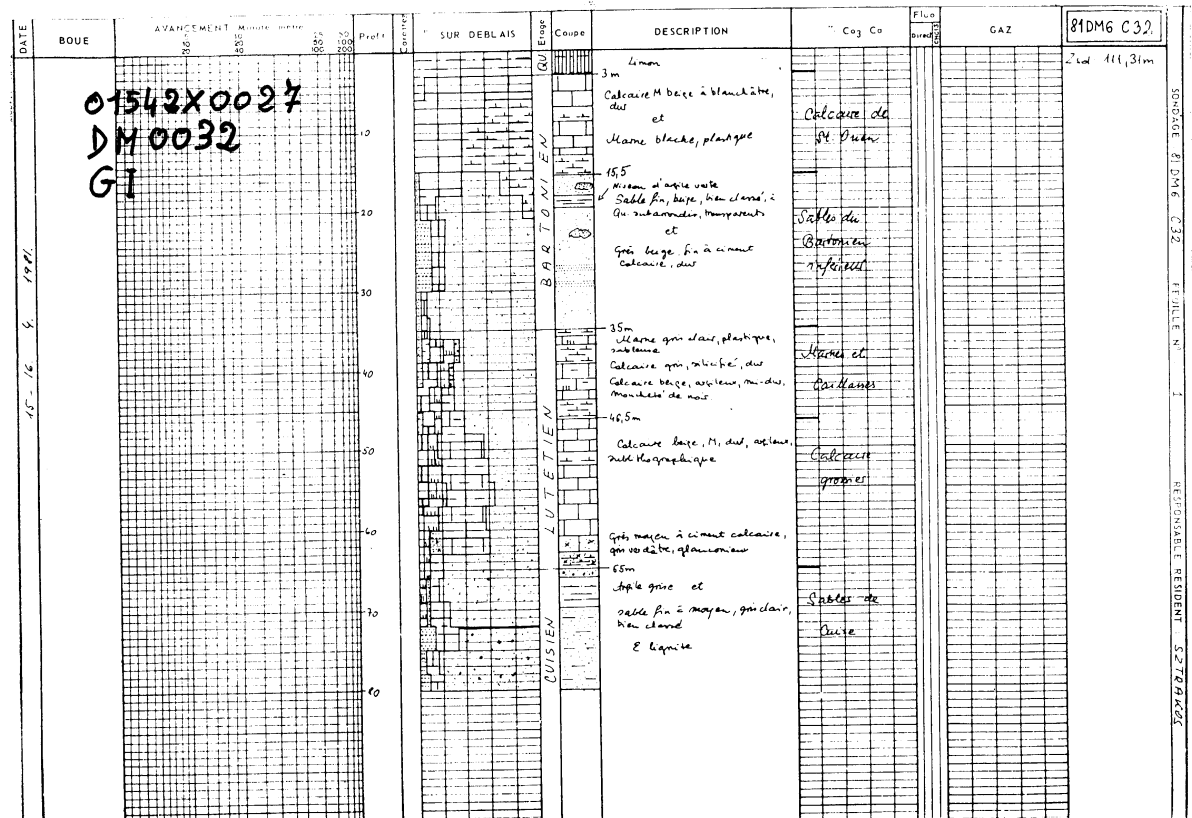 DATE
BOUE
AVANCEMENT Minute/mètre
Prof.r
Carottes
% SUR DEBLAIS
Etage
Coupe
DESCRIPTION
% Co3 Ca
Fluo
Direct
CHCl3
GAZ
81DM6 C32
Z sol 111,31m
01542X0027
DM0032
GI
15 - 16 . 4. 1981.
10
20
30
40
50
60
70
80
QU
BARTONIEN
LUTETIEN
CUISIEN
Limon
3m
Calcaire M beige à blanchâtre,
dur
et
Marne blache, plastique
15,5
Niveau d'argile verte
Sable fin, beige, bien classé, à
Qu. subarrondis, transparents
et
Grès beige, fin à ciment
Calcaire, dur
35m
Marne gris clair, plastique,
sableuse
Calcaire gris, silicifié, dur
Calcaire beige, argileux, mi-dur,
moucheté de noir.
46,5m
Calcaire beige, M, dur, argileux,
sublithographique
Grès moyen à ciment calcaire,
gris verdâtre, glauconieux
65m
Argile grise et
sable fin à moyen, gris clair,
bien classé
E lignite
Calcaire de
St. Ouen
Sables du
Bartonien
inférieur
Marnes et
Caillasses
Calcaire
grossier
Sables de
Cuise
SONDAGE 81DM6 C32 FEUILLE N° 1 RESPONSABLE RESIDENT : SZTRAKOS